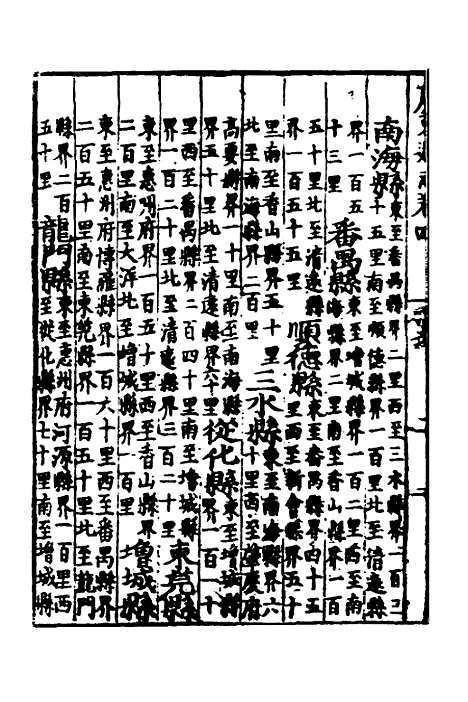 南海縣東至番禺縣界二里西至三水縣界一百二
十五里南至順德縣界一百里北至清遠縣
界一百五
十三里
番禺縣東至增城縣界一百二里西至南
海縣界二里南至香山縣界一百
五十里北至清遠縣
界一百五十五里
順德縣東至番禺縣界四十五
里西至新會縣界五十
里南至香山縣界五十里
北至南海縣界二百里
三水縣東至南海縣界六
十里西至肇慶府
高要縣界一十里南至南海縣
界五十里北至清遠縣界六十里
從化縣東至增城縣
界一百一十
里西至番禺縣界二百四十里南至增城縣
界一百二十里北至清遠縣界三百二十里
東莞縣
東至惠州府界一百五十里西至香山縣界
二百里南至大洋北至增城縣界一百里
增城縣
東至惠州府博羅縣界一百六十里西至番禺縣界
二百五十里南至東莞縣界一百五十里北至龍門
縣界二百
五十里
龍門縣東至惠州府河源縣界一百里西
至從化縣界七十里南至增城縣